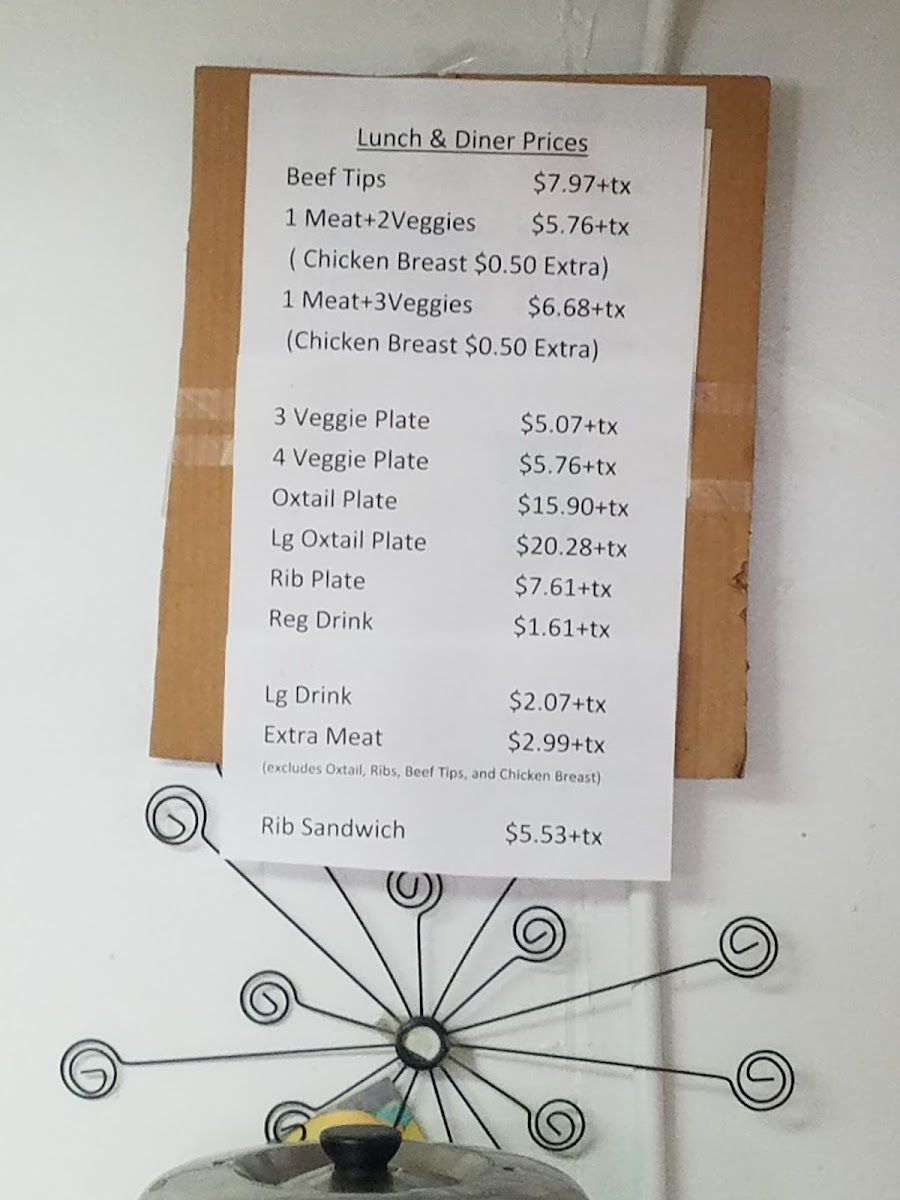 Lunch & Diner Prices
Beef Tips $7.97+tx
1 Meat+2Veggies $5.76+tx
( Chicken Breast $0.50 Extra)
1 Meat+3Veggies $6.68+tx
(Chicken Breast $0.50 Extra)
3 Veggie Plate $5.07+tx
4 Veggie Plate $5.76+tx
Oxtail Plate $15.90+tx
Lg Oxtail Plate $20.28+tx
Rib Plate $7.61+tx
Reg Drink $1.61+tx
Lg Drink $2.07+tx
Extra Meat $2.99+tx
(excludes Oxtail, Ribs, Beef Tips, and Chicken Breast)
Rib Sandwich $5.53+tx